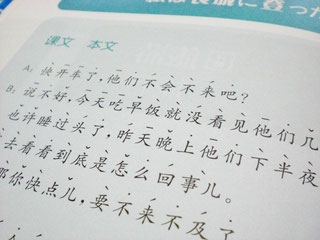 课文 本文
A: 快开车了，他们不会不来吧？
B: 说不好，今天吃早饭就没看见他们几
也许睡过头了，昨天晚上他们下半夜
去看看到底是怎么回事儿。
那你快点儿，要不来不及了